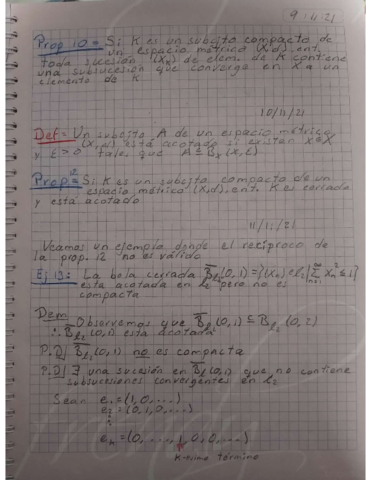 9·11·21
Prop 10 = Si K es un subcjto compacto de
un espacio métrico (X,d), ent.
toda sucesión (Xn) de elem. de K contiene
una subsucesión que converge en X a un
elemento de K.
10/11/21
Def = Un subcjto A de un espacio métrico
(X,d) está acotado si existen x∈X
y ε>0 tales que A ⊆ Bx(x,ε).
Prop 12 = Si K es un subcjto compacto de un
espacio métrico (X,d), ent. K es cerrado
y está acotado
11/11/21
Veamos un ejemplo donde el recíproco de
la prop. 12 no es válido
Ej 13: La bola cerrada B̅ℓ₂(0,1)={(Xn)∈ℓ₂|∑Xn²≤1}
está acotada en ℓ₂ pero no es
compacta
Dem
Observemos que B̅ℓ₂(0,1) ⊆ Bℓ₂(0,2)
∴ B̅ℓ₂(0,1) está acotada
P.D/ B̅ℓ₂(0,1) no es compacta
P.D/ ∃ una sucesión en B̅ℓ₂(0,1) que no contiene
subsucesiones convergentes en ℓ₂
Sean e₁=(1,0,...)
e₂=(0,1,0,...)
⋮
eₖ=(0,...,1,0,0,...)
k-ésimo término